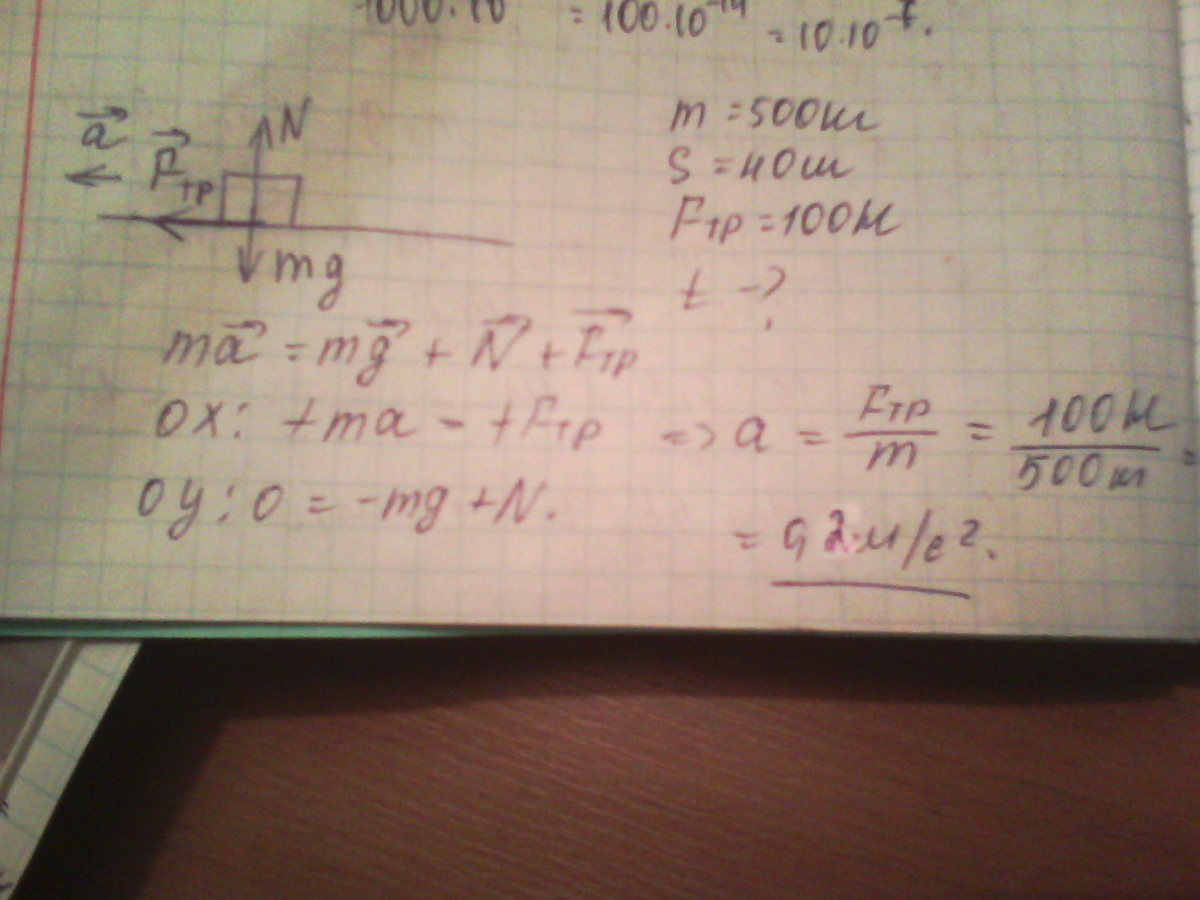 = 100·10⁻¹⁴ = 10·10⁻⁷.
a⃗ F⃗тр N
mg
m = 500кг
S = 40м
Fтр = 100Н
t - ?
ma⃗ = mg⃗ + N⃗ + F⃗тр
OX: +ma = +Fтр => a = Fтр/m = 100Н/500кг =
= 0,2 м/с².
OY: 0 = -mg + N.